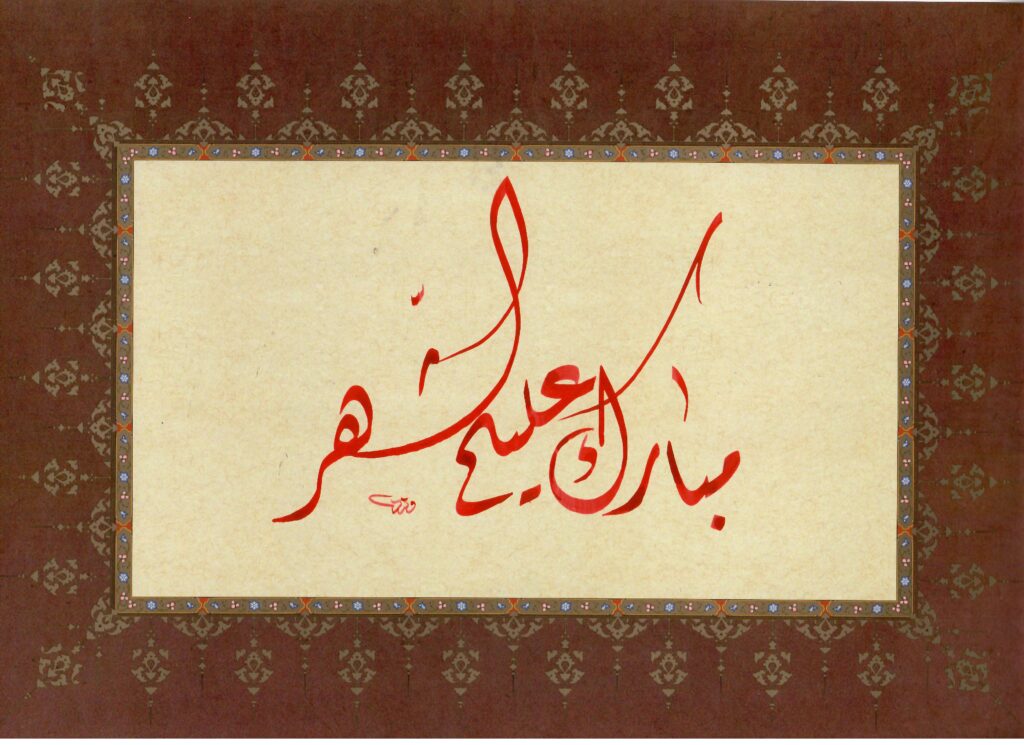 مبارك عليكم الشهر